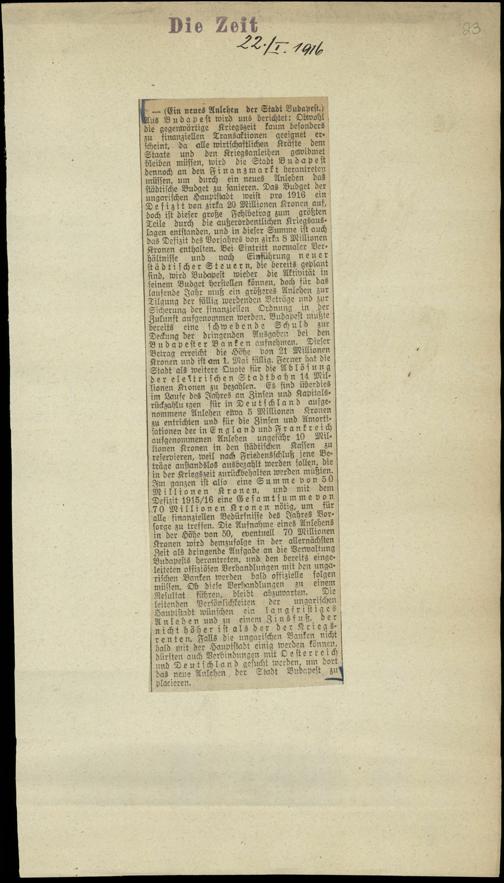 Die Zeit
23
22./I. 1916
— (Ein neues Anlehen der Stadt Budapest.)
Aus Budapest wird uns berichtet: Obwohl
die gegenwärtige Kriegszeit kaum besonders
zu finanziellen Transaktionen geeignet er-
scheint, da alle wirtschaftlichen Kräfte dem
Staate und den Kriegsanleihen gewidmet
bleiben müssen, wird die Stadt Budapest
dennoch an den Finanzmarkt herantreten
müssen, um durch ein neues Anlehen das
städtische Budget zu sanieren. Das Budget der
ungarischen Hauptstadt weist pro 1916 ein
Defizit von zirka 20 Millionen Kronen auf,
doch ist dieser große Fehlbetrag zum größten
Teile durch die außerordentlichen Kriegsaus-
lagen entstanden, und in dieser Summe ist auch
das Defizit des Vorjahres von zirka 8 Millionen
Kronen enthalten. Bei Eintritt normaler Ver-
hältnisse und nach Einführung neuer
städtischer Steuern, die bereits geplant
sind, wird Budapest wieder die Aktivität in
seinem Budget herstellen können, doch für das
laufende Jahr muß ein größeres Anlehen zur
Tilgung der fällig werdenden Beträge und zur
Sicherung der finanziellen Ordnung in der
Zukunft aufgenommen werden. Budapest mußte
bereits eine schwebende Schuld zur
Deckung der dringenden Ausgaben bei den
Budapester Banken aufnehmen. Dieser
Betrag erreicht die Höhe von 21 Millionen
Kronen und ist am 1. Mai fällig. Ferner hat die
Stadt als weitere Quote für die Ablösung
der elektrischen Stadtbahn 14 Mil-
lionen Kronen zu bezahlen. Es sind überdies
im Laufe des Jahres an Zinsen und Kapitals-
rückzahlungen für in Deutschland aufge-
nommene Anlehen etwa 5 Millionen Kronen
zu entrichten und für die Zinsen und Amorti-
sationen der in England und Frankreich
aufgenommenen Anlehen ungefähr 10 Mil-
lionen Kronen in den städtischen Kassen zu
reservieren, weil nach Friedensschluß jene Be-
träge anstandslos ausbezahlt werden sollen, die
in der Kriegszeit zurückbehalten werden mußten.
Im ganzen ist also eine Summe von 50
Millionen Kronen, und mit dem
Defizit 1915/16 eine Gesamtsumme von
70 Millionen Kronen nötig, um für
alle finanziellen Bedürfnisse des Jahres Vor-
sorge zu treffen. Die Aufnahme eines Anlehens
in der Höhe von 50, eventuell 70 Millionen
Kronen wird demzufolge in der allernächsten
Zeit als dringende Aufgabe an die Verwaltung
Budapests herantreten, und den bereits einge-
leiteten offiziösen Verhandlungen mit den unga-
rischen Banken werden bald offizielle folgen
müssen. Ob diese Verhandlungen zu einem
Resultat führen, bleibt abzuwarten. Die
leitenden Persönlichkeiten der ungarischen
Hauptstadt wünschen ein langfristiges
Anlehen und zu einem Zinsfuß, der
nicht höher ist als der der Kriegs-
renten. Falls die ungarischen Banken nicht
bald mit der Hauptstadt einig werden können,
dürften auch Verbindungen mit Oesterreich
und Deutschland gesucht werden, um dort
das neue Anlehen der Stadt Budapest zu
placieren.